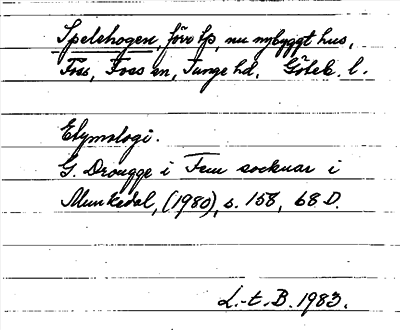 Spelehogen, förr lp, nu nybyggt hus,
Foss, Foss sn, Tunge hd, Göteb. l.
Etymologi.
G. Drougge i Fem socknar i
Munkedal, (1980), s. 158, 68 D.
L.-t. B. 1983.